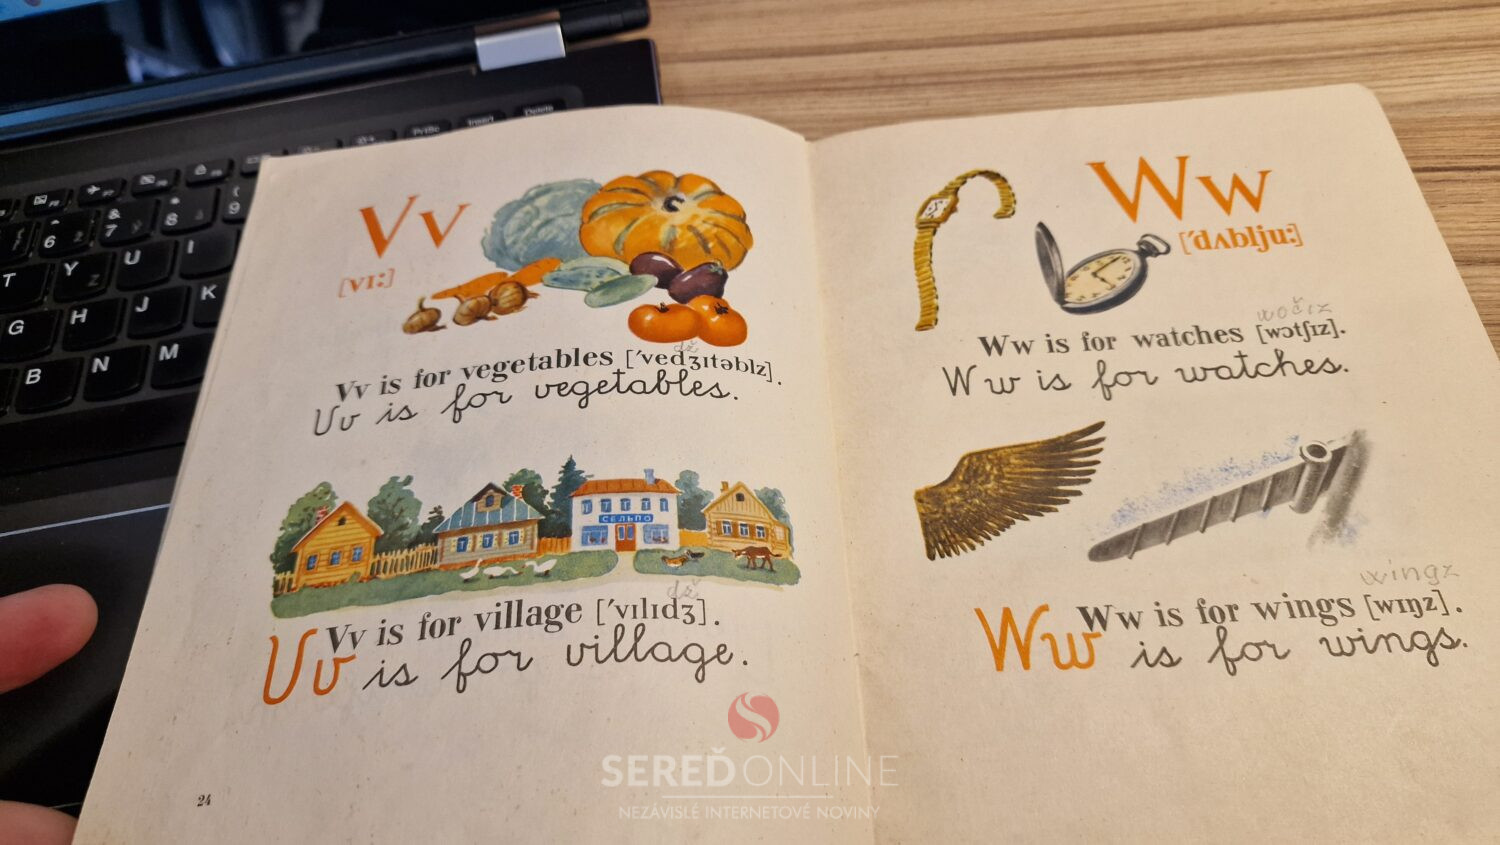 Vv
[vɪ:]
dž
Vv is for vegetables [ˊvedʒɪtəblz].
Vv is for vegetables.
СЕЛЬПО
dž
Vv is for village [ˊvɪlɪdʒ].
Vv is for village.
24
Ww
[ˊdʌblju:]
wočiz
Ww is for watches [wɔtʃɪz].
Ww is for watches.
wingz
Ww is for wings [wɪŋz].
Ww is for wings.
PrtSc
Insert
Delete
6
7
8
9
T
Y
U
I
G
H
J
K
B
N
M
SEREĎ ONLINE
NEZÁVISLÉ INTERNETOVÉ NOVINY